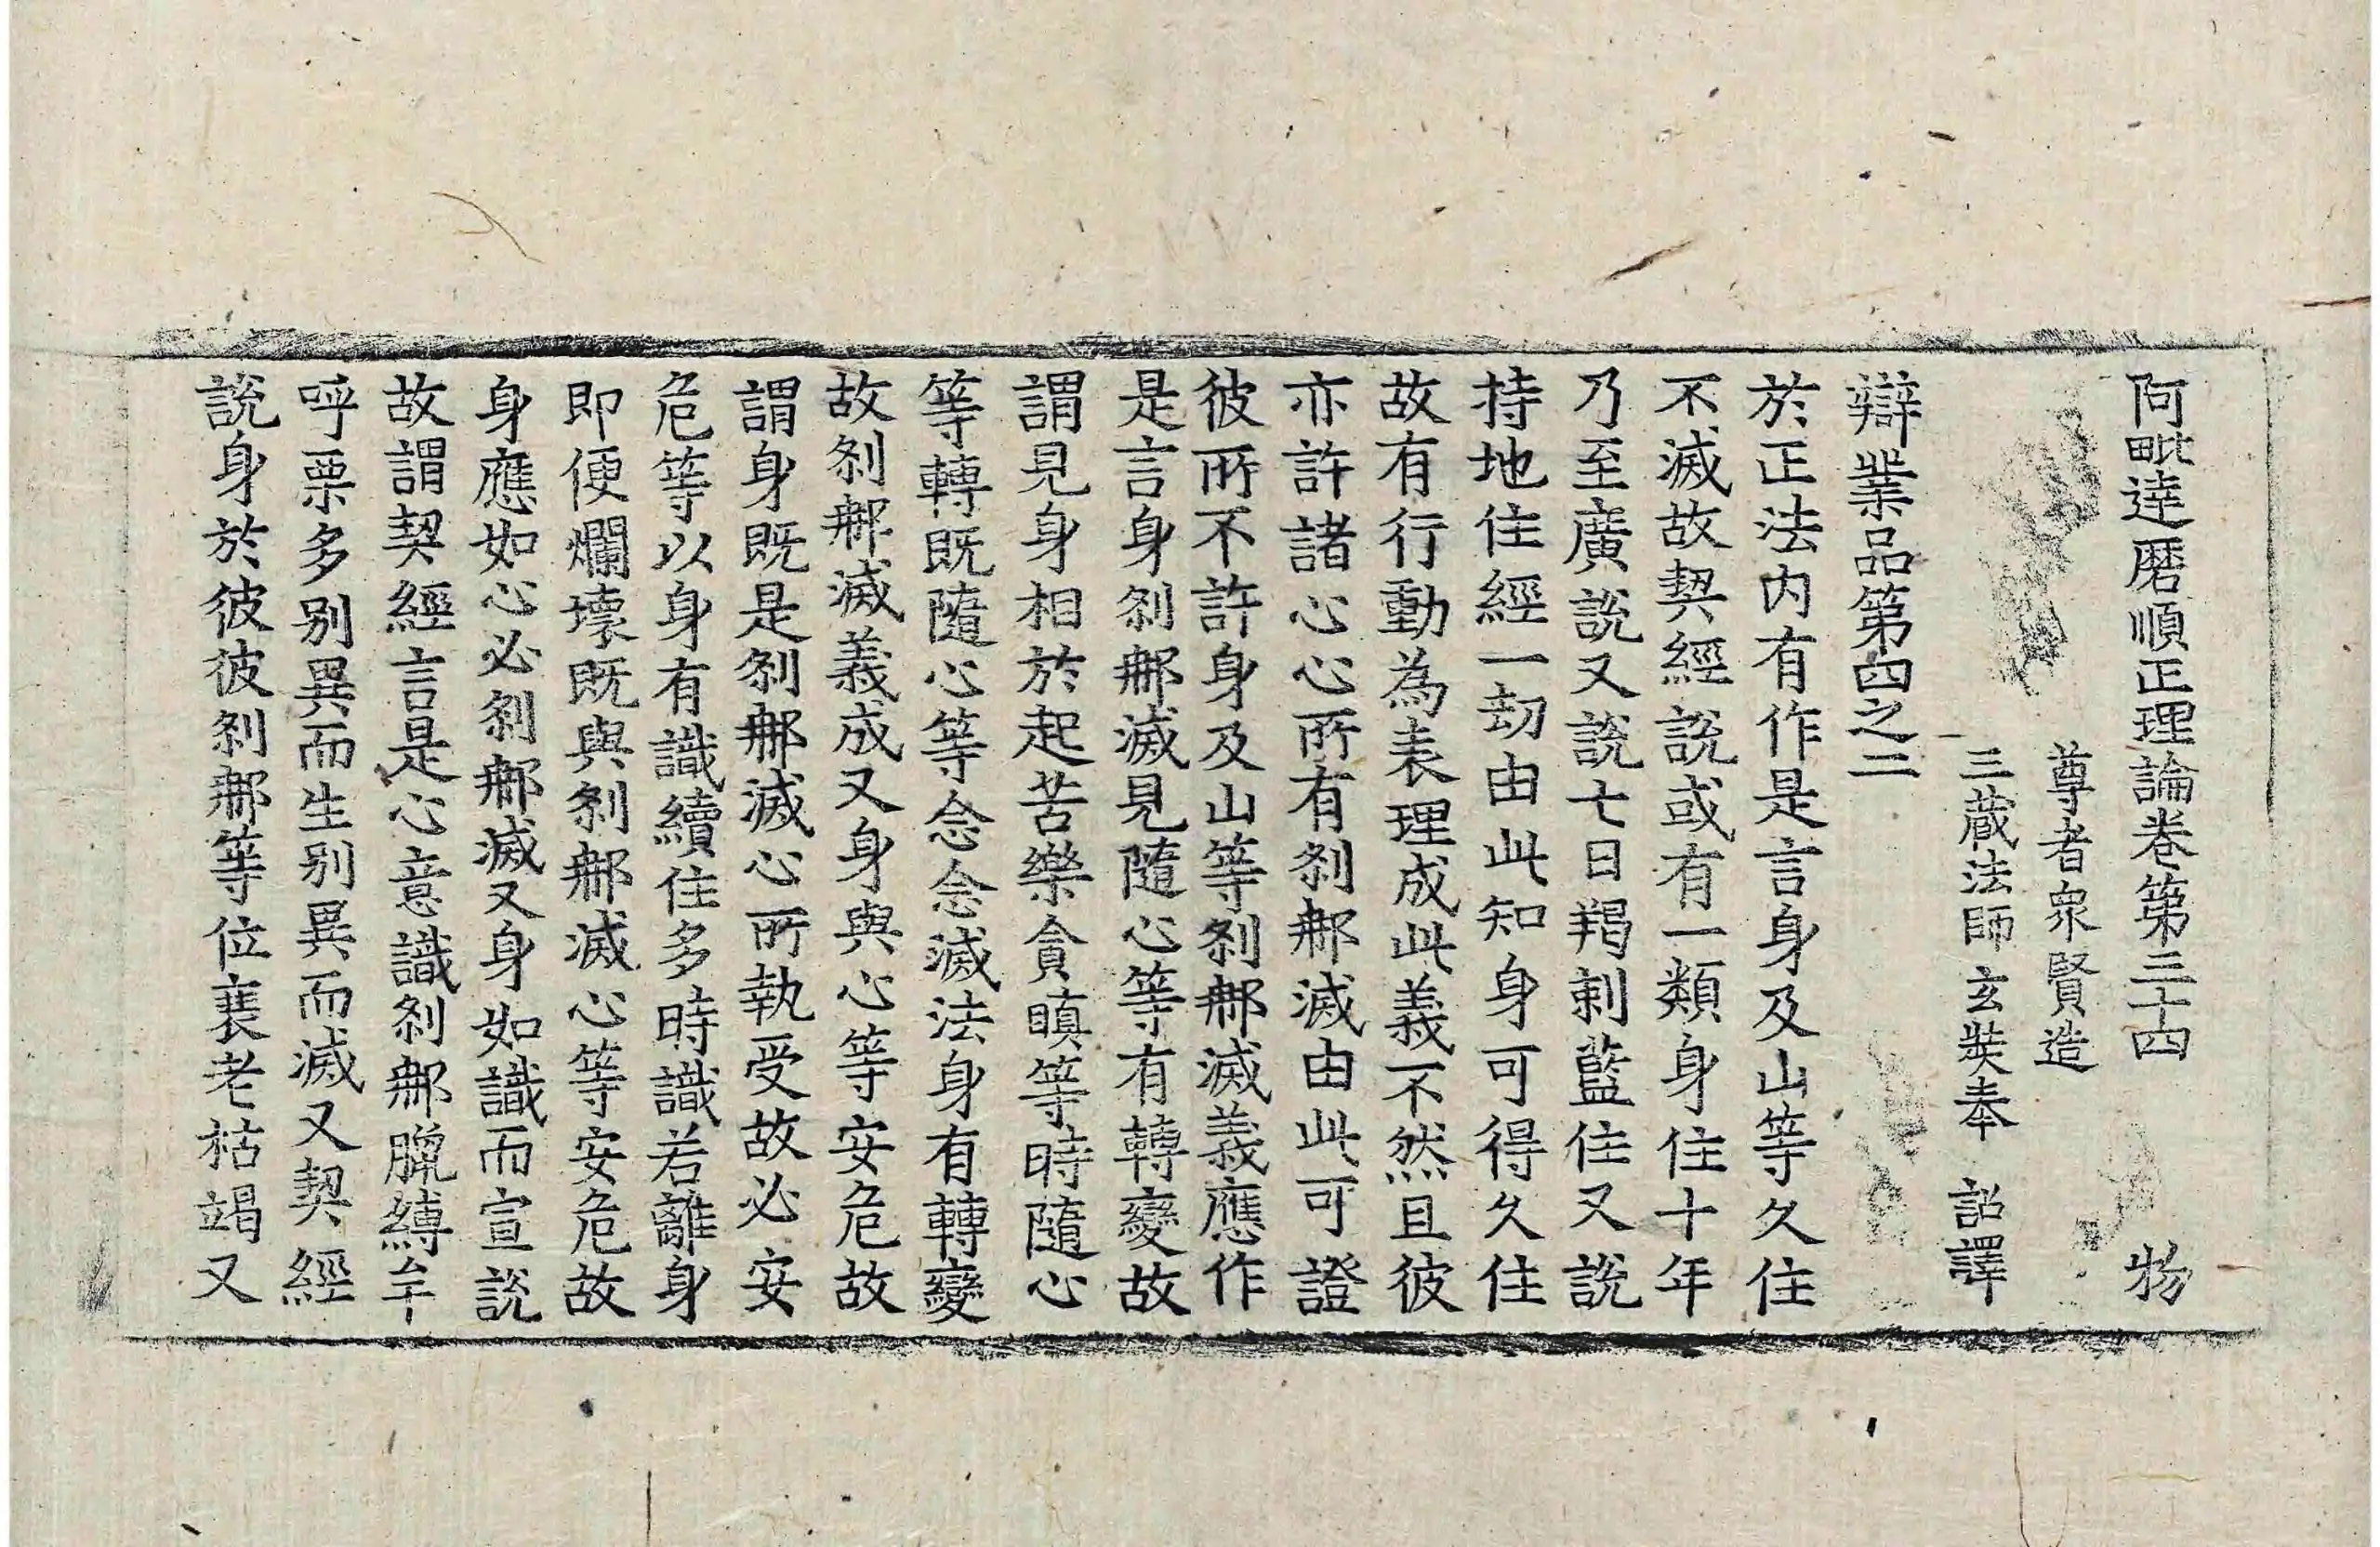 阿毗達磨順正理論卷第三十四 物
尊者衆賢造
三藏法師玄奘奉 詔譯
辯業品第四之二
於正法内有作是言身及山等久住
不滅故契經說或有一類身住十年
乃至廣說又說七日羯剌藍住又說
持地住經一劫由此知身可得久住
故有行動為表理成此義不然且彼
亦許諸心心所有剎那滅由此可證
彼所不許身及山等剎那滅義應作
是言身剎那滅見隨心等有轉變故
謂見身相於起苦樂貪瞋等時隨心
等轉既隨心等念念滅法身有轉變
故剎那滅義成又身與心等安危故
謂身既是剎那滅心所執受故必安
危等以身有識續住多時識若離身
即便爛壞既與剎那滅心等安危故
身應如心必剎那滅又身如識而宣說
故謂契經言是心意識剎那臘縛牟
呼栗多別異而生別異而滅又契經
說身於彼彼剎那等位衰老枯竭又